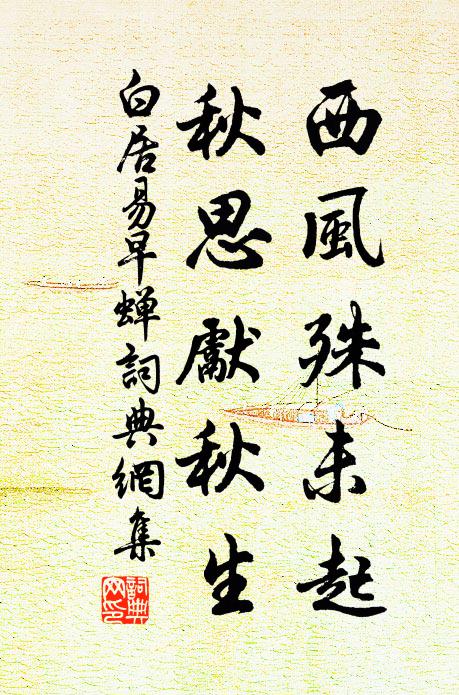 西風殊未起
秋思獻秋生
白居易早蝉詞典網集
詞典网印